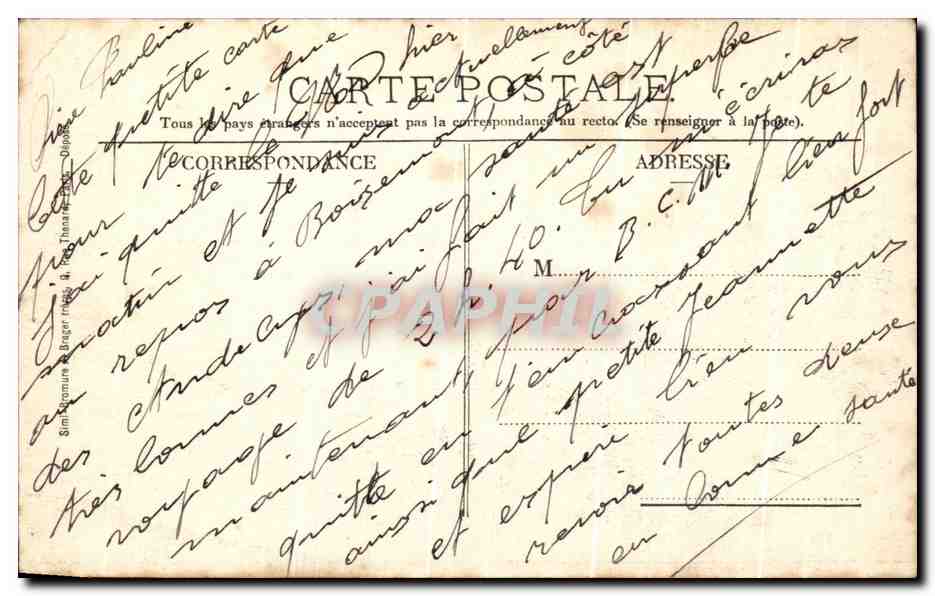 CARTE POSTALE
Tous les pays étrangers n'acceptent pas la correspondance au recto. (Se renseigner à la poste).
CORRESPONDANCE
ADRESSE
M
CPAPHIL
Chère Pauline
Cette petite carte
pour te dire que
J'ai quitté le hier
matin et je suis actuellement
au repos à Boisemont à côté
des Andelys ma santé est
très bonne et j'ai fait un superbe
voyage de 2 h. 40. Tu m'écriras
maintenant par B.C.M. Je te
quitte en t'embrassant bien fort
ainsi que petite Jeannette
et espère bien vous
revoir toutes deux
en bonne santé